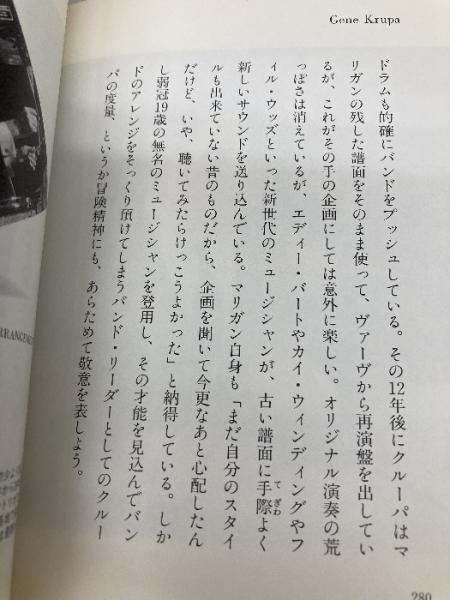 Gene Krupa
ドラムも的確にバンドをプッシュしている。その12年後にクルーパはマ
リガンの残した譜面をそのまま使って、ヴァーヴから再演盤を出してい
るが、これがその手の企画にしては意外に楽しい。オリジナル演奏の荒
っぽさは消えているが、エディー・バートやカイ・ウィンディングやフ
ィル・ウッズといった新世代のミュージシャンが、古い譜面に手際よく
てぎわ
新しいサウンドを送り込んでいる。マリガン自身も「まだ自分のスタイ
ルも出来ていない昔のものだから、企画を聞いて今更なあと心配したん
だけど、いや、聴いてみたらけっこうよかった」と納得している。しか
し弱冠19歳の無名のミュージシャンを登用し、その才能を見込んでバン
ドのアレンジをそっくり預けてしまうバンド・リーダーとしてのクルー
パの度量、というか冒険精神にも、あらためて敬意を表しよう。
280